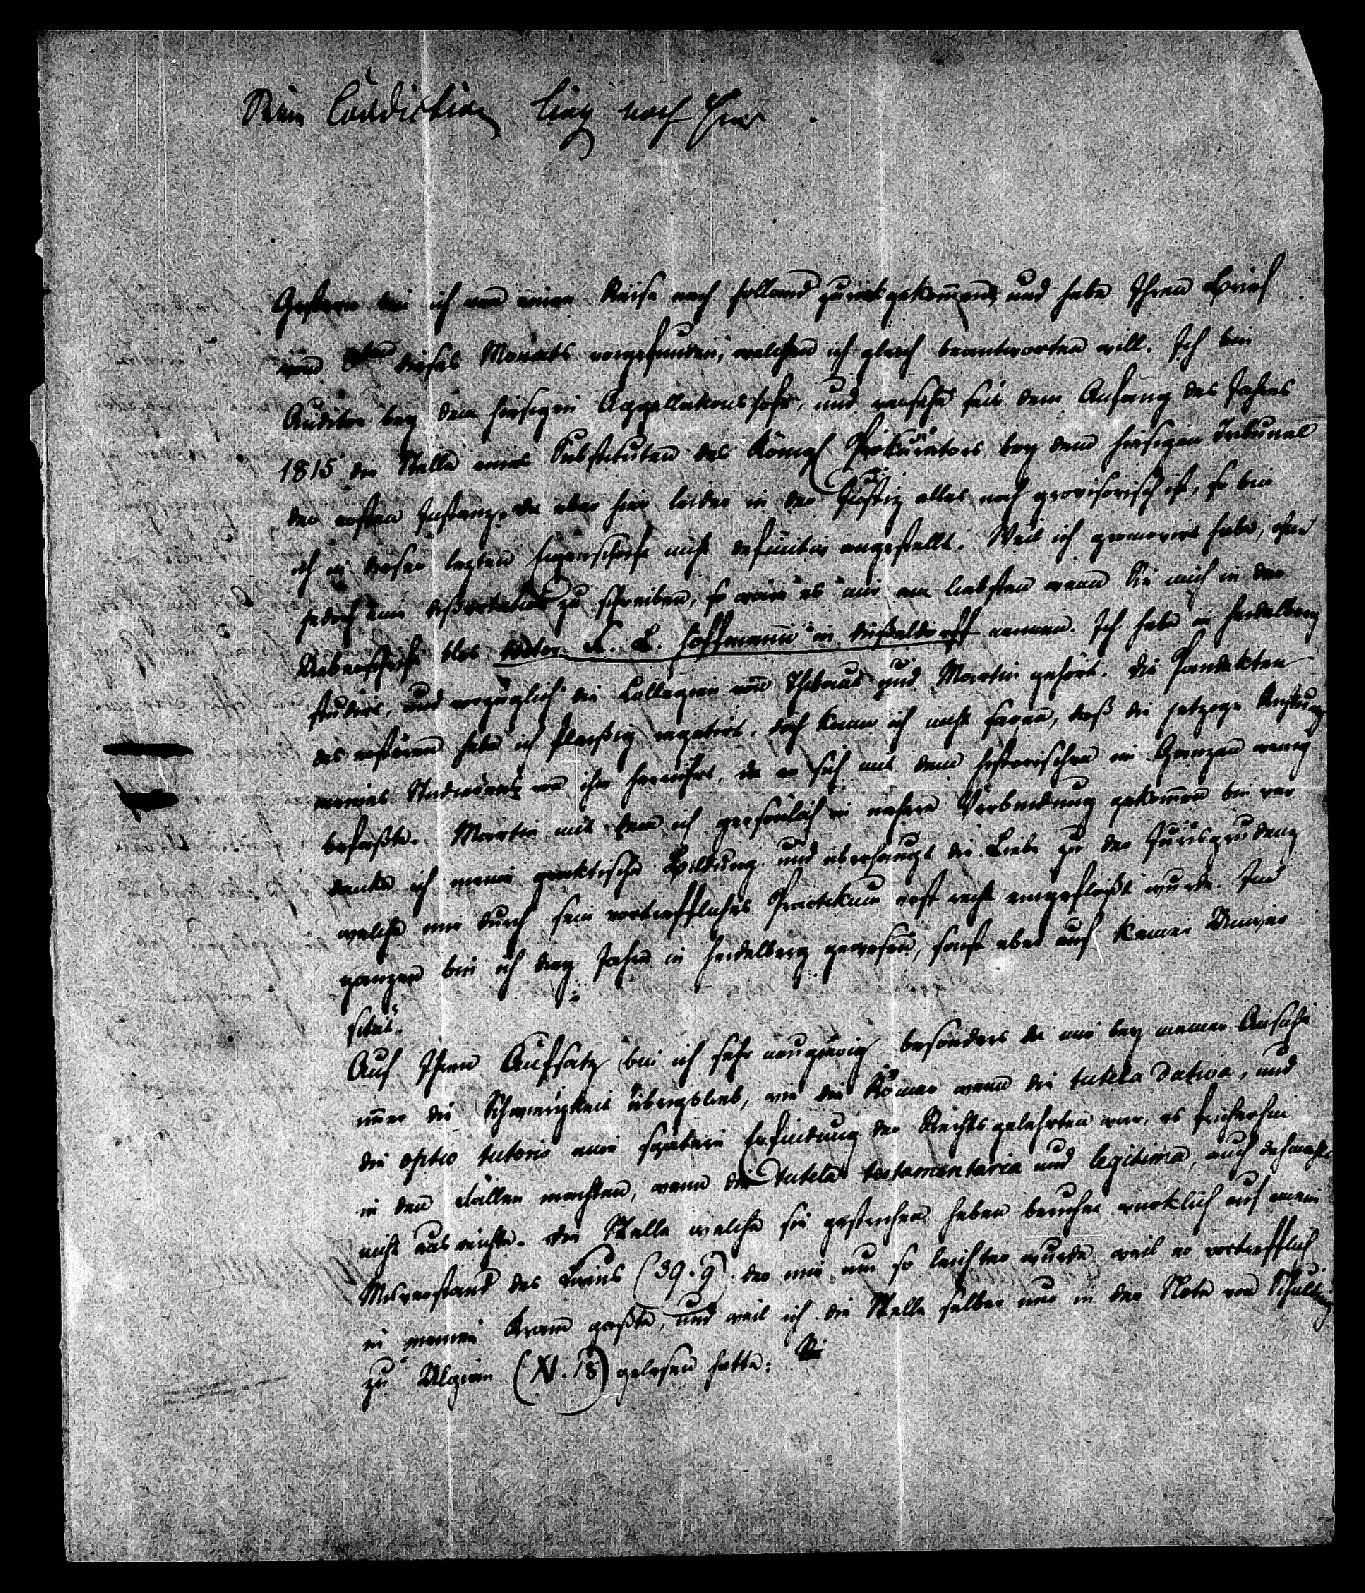 Gestern bin ich von einer Reise nach Holland zurückgekom̅en, und habe Ihren Brief
vom dieses Monats vorgefunden, welchen ich gleich beantworten will. Ich bin
Auditor bey dem hiesigen Appellationshofe, und versehe seit dem Anfang des Jahres
1815 die Stelle eines Substituten des Königl Prokurators bey dem hiesigen Tribunal
der ersten Instanz. Da aber hier leider in der Justiz alles noch provisorisch ist, so bin
ich in dieser lezten Eigenschaft nicht definitiv angestellt. Weil ich promovirt habe, ohne
jedoch eine Dissertation zu schreiben, so wäre es mir am liebsten wenn Sie mich in der
Ueberschrift blos Hoffmann in Düsseldorff nennen. Ich habe in Heidelberg
studirt, und vorzüglich die Collegien von Thibaut und Martin gehört. Die Pandekten
des ersteren habe ich fleißig repetirt, doch kann ich nicht sagen, daß die jetzige Richtung
meines Studiums von ihm herrührt, da er sich mit dem historischen im Ganzen wenig
befaßte. Martin mit dem ich persönlich in nähere Verbindung gekom̅en bin ver
danke ich meine praktische Bildung und überhaupt die Liebe zu der Jurisprudenz
welche mir durch sein vortreffliches Practikum erst recht eingeflößt wurde. Im
ganzen bin ich drey Jahre in Heidelberg gewesen, sonst aber auf keiner Univer
sität.
Auf Ihren Aufsatz bin ich sehr neugierig besonders da mir bey meiner Ansicht
im̅er die Schwierigkeit übrigblieb, wie die Römer wenn die tutela dativa, und
die optio tutoris eine spätere Erfindung der Rechtsgelehrten war, es früherhin
in den Fällen machten, wenn die tutela testamentaria und legitima, auch
nicht ausreichte. Die Stelle welche sie gestrichen haben beruhet wirklich auf einem
Misverstand des Livius (39.9) der mir um so leichter wurde weil er vortrefflich
in meinen Kram paßte, und weil ich die Stelle selber nur in der Note von Schulting
zu Ulpian (XI. 18) gelesen hatte: Sie